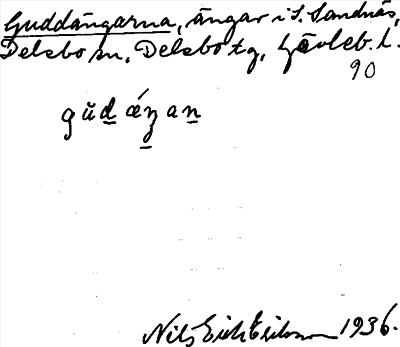 Guddängarna, ängar i S. Sandnäs,
Delsbo sn, Delsbo tg, Gävleb. l.
90
gŭd̲ǽŋ̲an̲
Nils Erik Eriksson 1936.